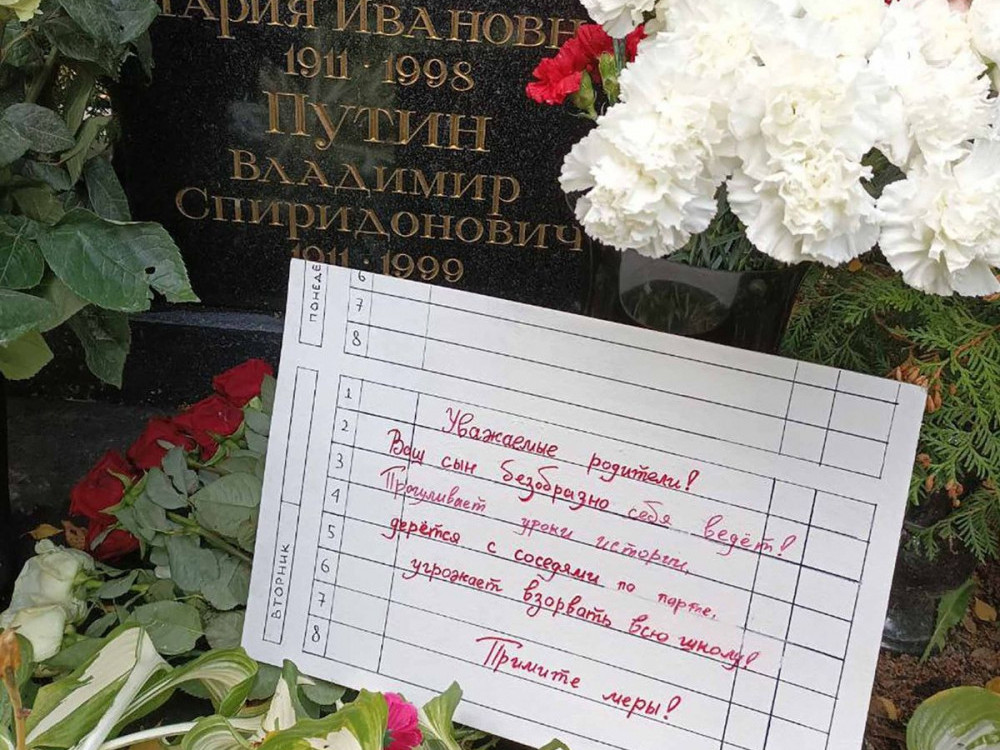 Мария Ивановн
1911 · 1998
Путин
Владимир
Спиридонович
1911 · 1999
ПОНЕДЕ
6
7
8
ВТОРНИК
1
2
3
4
5
6
7
8
Уважаемые родители!
Ваш сын безобразно себя ведёт!
Прогуливает уроки истории,
дерётся с соседями по парте,
угрожает взорвать всю школу!
Примите меры!